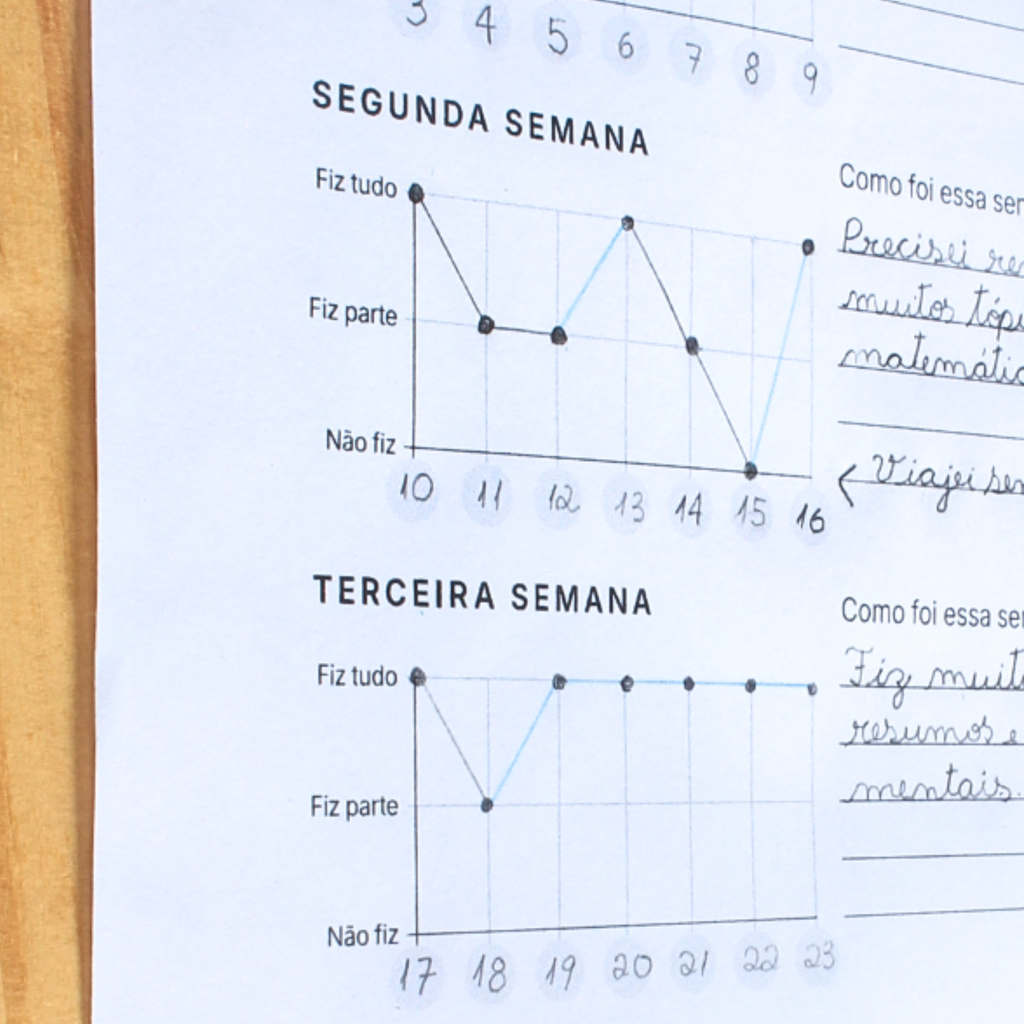 3 4 5 6 7 8 9
SEGUNDA SEMANA
Fiz tudo
Fiz parte
Não fiz
10 11 12 13 14 15 16
Como foi essa
Precisei
muitos
← Viajei
TERCEIRA SEMANA
Fiz tudo
Fiz parte
Não fiz
17 18 19 20 21 22 23
Como foi essa
Fiz
resumos e
mentais.